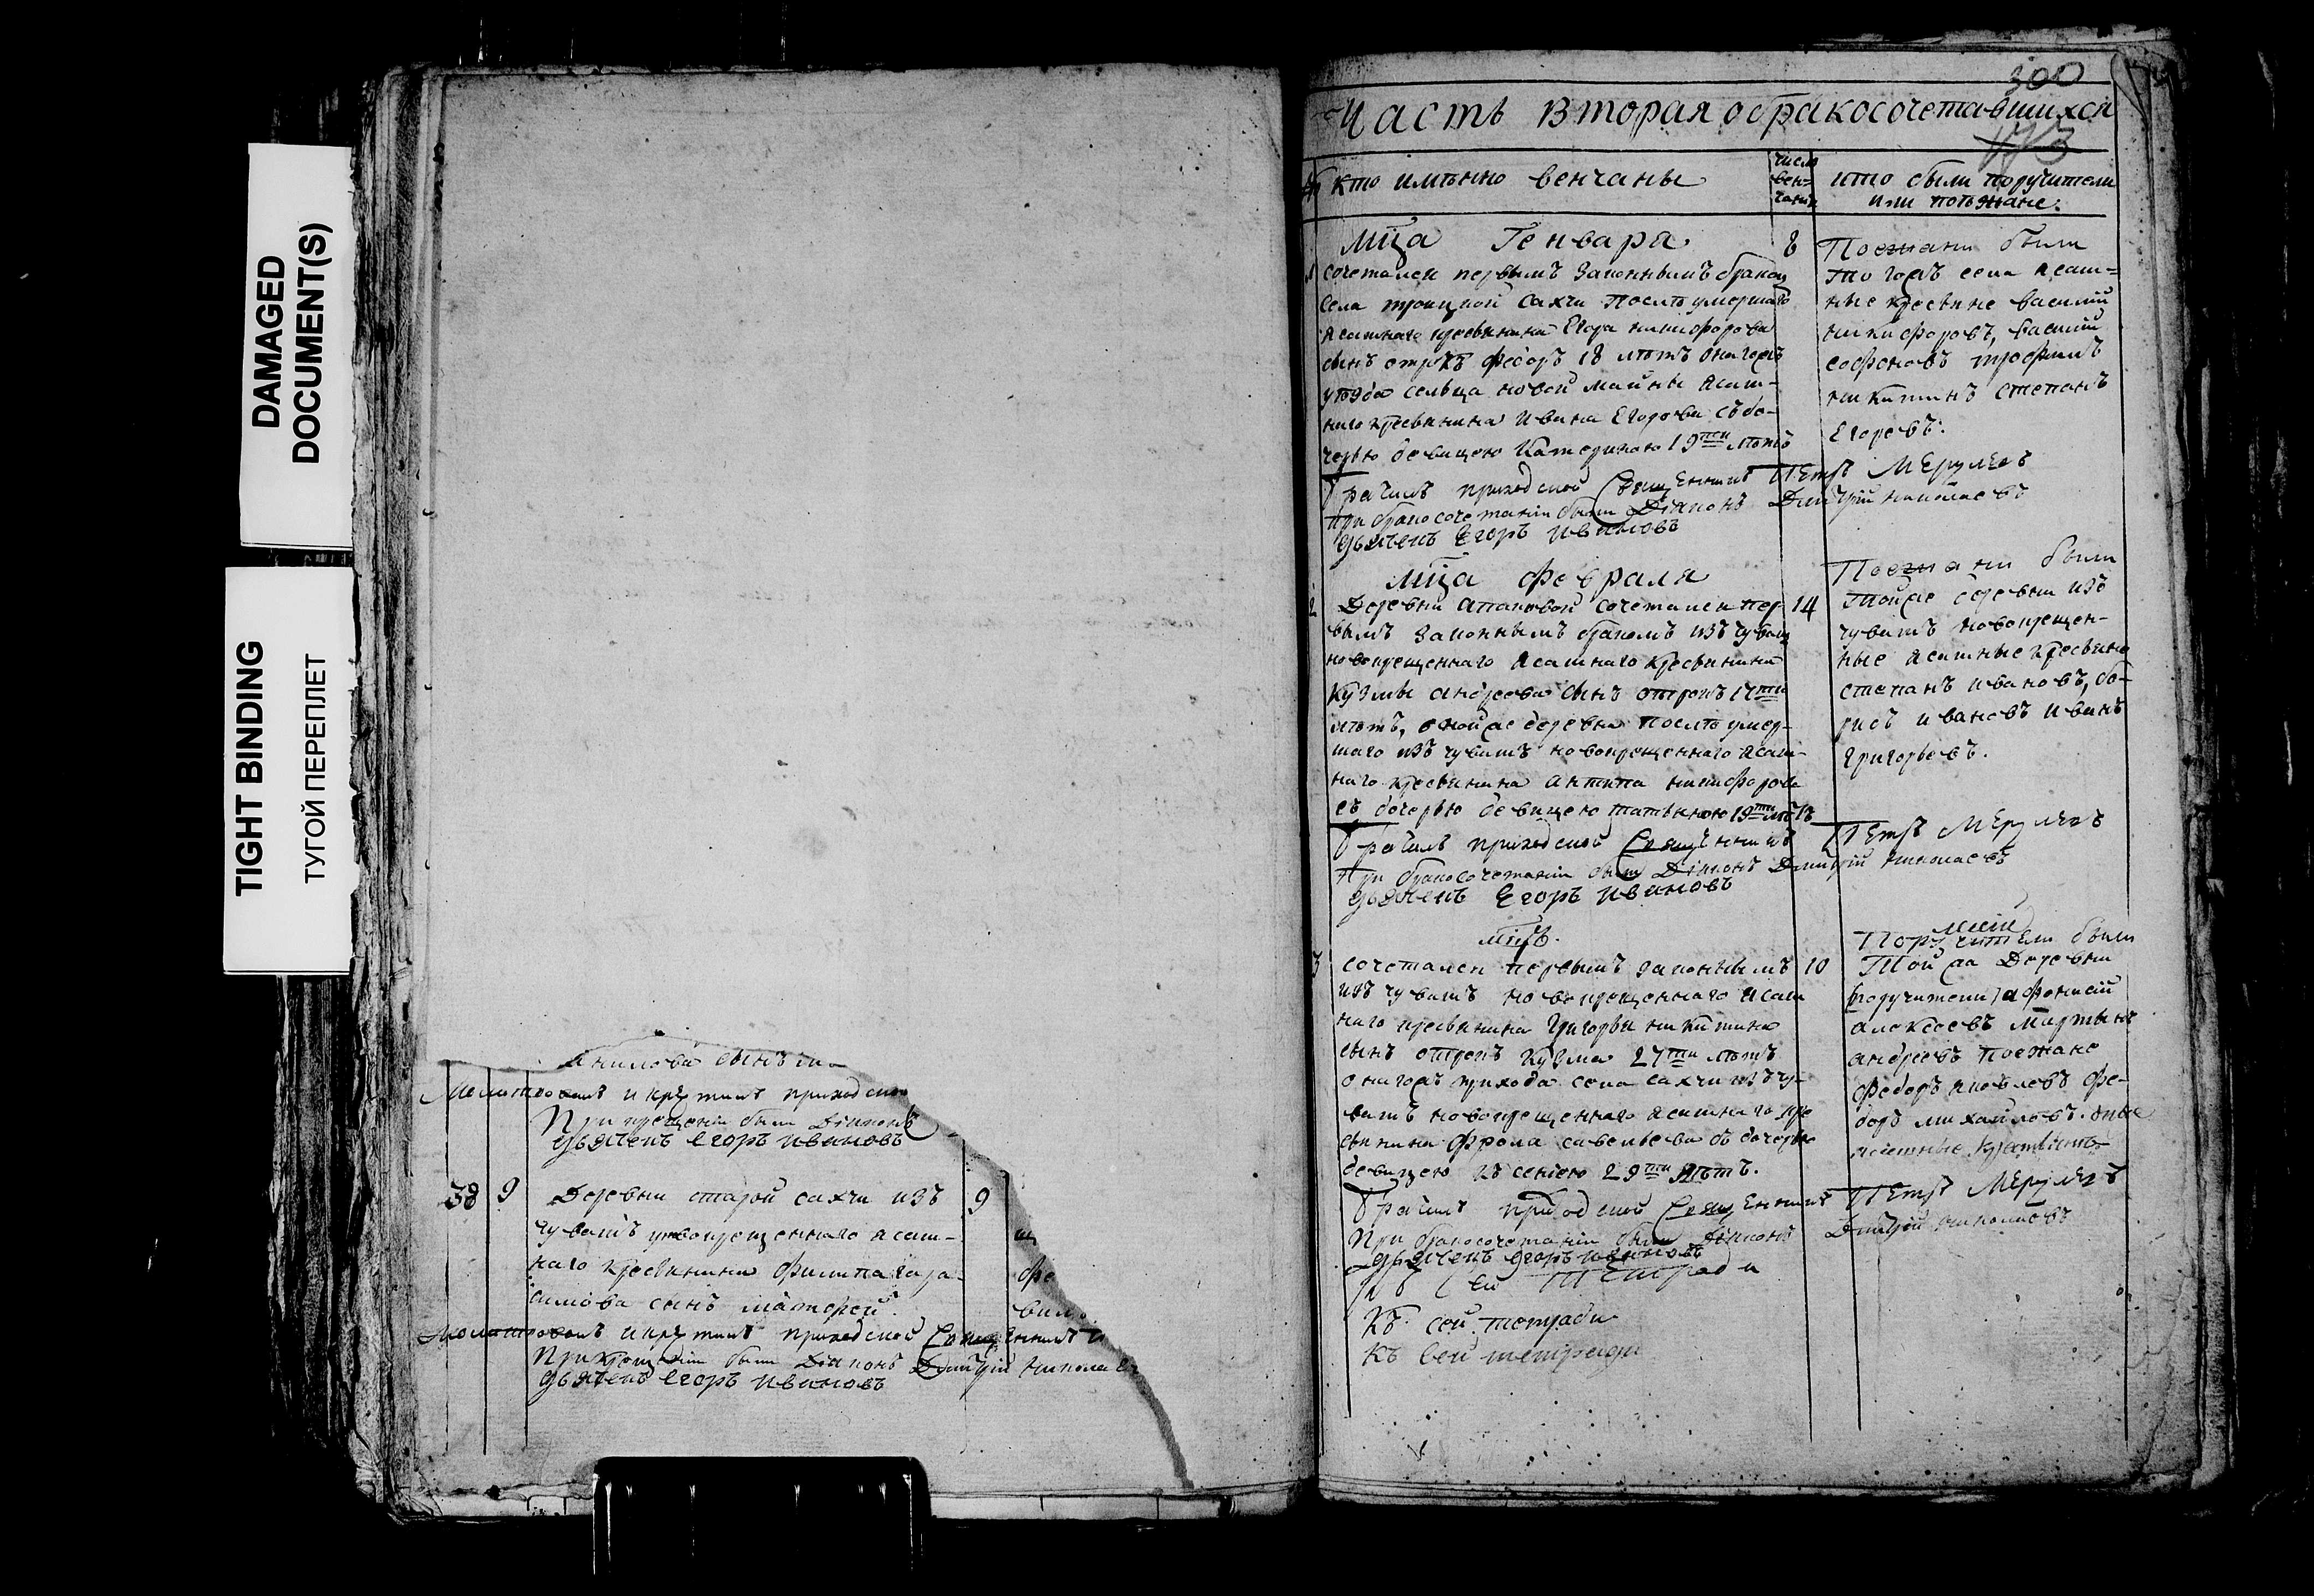 DAMAGED
DOCUMENT(S)
TIGHT BINDING
ТУГОЙ ПЕРЕПЛЕТ
анилова сынъ
Молитвовалъ и крестилъ приходской
При крещении были Дiаконъ
дьячекъ Егоръ Ивановъ
38 9 Деревни старой сахчи изъ 9
чувашъ новокрещеннаго ясаш-
наго кресьянина Филипа гара-
симова сынъ матфей.
Молитвовалъ и крестилъ приходской Священникъ
При крещении были Дiаконъ Дмитрiй Никола
дьячекъ Егоръ Ивановъ
300
Часть вторая о бракосочетавшихся
кто имянно венчаны
число
вен-
чания
кто были поручители
или поезжане.
мца Генваря 8
1 сочетался первымъ законнымъ бракомъ
села троицкой сахчи после умершаго
ясашнаго кресьянина Егора никифорова
сынъ отрокъ федоръ 18 летъ онагожъ
уезда сельца новой майны ясаш-
наго кресьянина Ивана Егорова съ до-
черью девицею Катериною 19ти летъ
Поезжани были
того жъ села ясаш-
ные кресьяне василий
никифоровъ, василий
софоновъ трофимъ
никитинъ степанъ
Егоровъ.
Брачилъ приходской Священникъ Петръ Мерулевъ
При бракосочетанiи были Дiаконъ Дмитрiй николаевъ
дьячекъ Егоръ Ивановъ
мца февраля
2 Деревни апаковой сочетался пер- 14
вымъ законнымъ бракомъ изъ чувашъ
новокрещеннаго ясашнаго кресьянина
кузмы андреева сынъ отрокъ 17ти
летъ, оной же деревни после умер-
шаго изъ чувашъ новокрещеннаго ясаш-
наго кресьянина антипа никифорова
съ дочерью девицею татьяною 19ти летъ
Поезжани были
тойже деревни изъ
чувашъ новокрещен-
ные ясашные кресьяне
степанъ ивановъ, бо-
рисъ ивановъ иванъ
григорьевъ.
Брачилъ приходской Священникъ Петръ Мерулевъ
При бракосочетанiи были Дiаконъ Дмитрiй николаевъ
дьячекъ Егоръ Ивановъ
3 сочетался первымъ законнымъ 10
изъ чувашъ новокрещеннаго ясаш
наго кресьянина Григорья никитина
сынъ отрокъ кузма 27ми летъ
онагожъ прихода села сахчи изъ чу-
вашъ новокрещеннаго ясашнаго кре
сьянина фрола савельева съ дочерью
девицею ксениею 29ти летъ.
Поручители были
Той жа Деревни
поручители афонасiй
алексеевъ мартынъ
андреевъ поезжане
федоръ яковлевъ фе-
доръ михайловъ.
ясашные
Брачилъ приходской Священникъ Петръ Мерулевъ
При бракосочетанiи были Дiаконъ Дмитрiй николаевъ
дьячекъ Егоръ Ивановъ
Къ сей Тетради
Къ сей тетради
Къ сей тетради